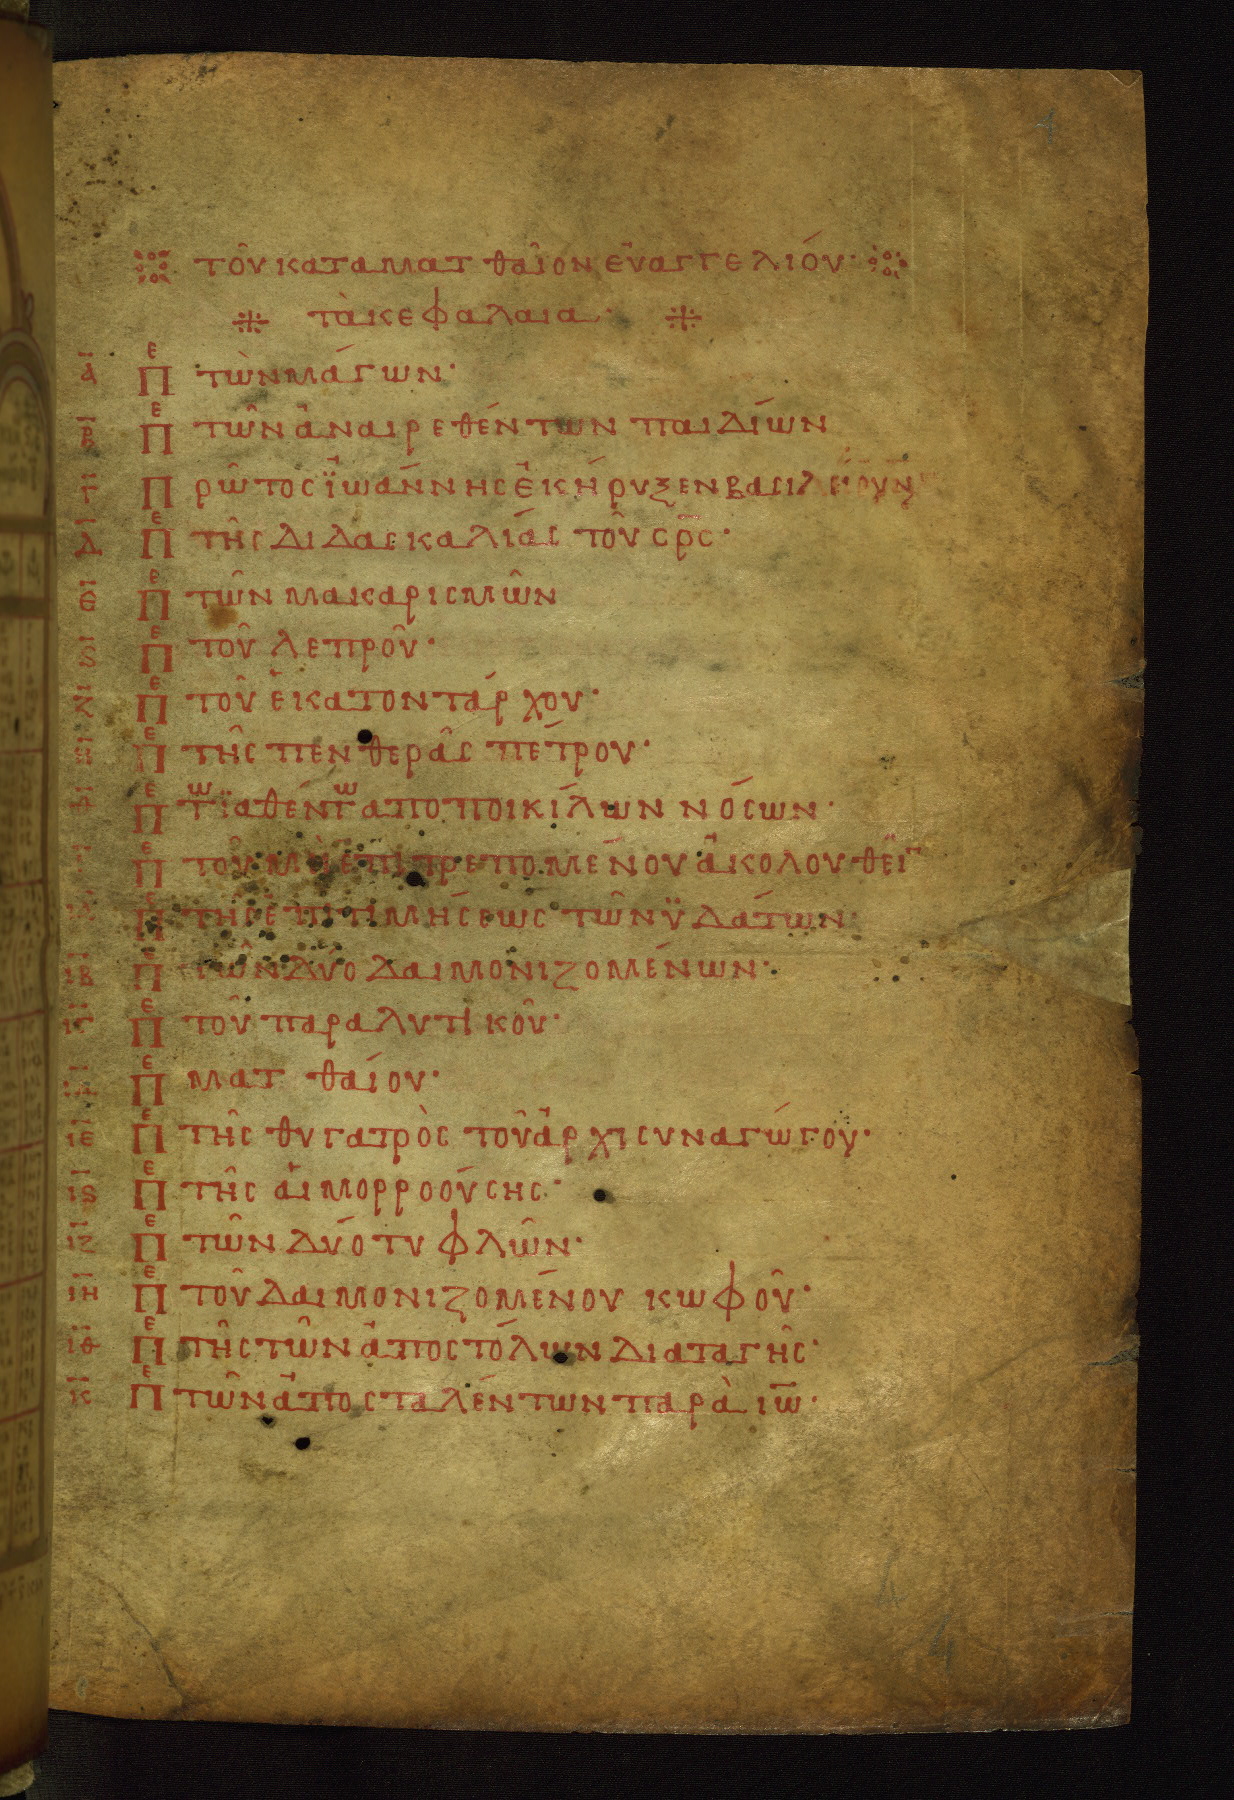 τοῦ κατα ματθαῖον εὐαγγελίου·
τὰ κεφάλαια·
Α Πε τὼν μάγων·
Β Πε τῶν ἀναιρεθέντων παιδίων
Γ Πρῶτος ϊωάννης ἐκήρυξεν
Δ Πε τῆς διδασκαλίας τοῦ σρς·
Ε Πε τῶν μακαρισμῶν
Ϛ Πε τοῦ λεπροῦ·
Ζ Πε τοῦ ἑκατοντάρχου·
Η Πε τῆς πενθερᾶς πέτρου·
Πε ἀπο ποικίλων νόσων·
Πε τοῦ μὴ ἐπιτρεπομένου ἀκολουθεῖ
Πε τῆς ἐπιτιμήσεως τῶν ϋδάτων·
ΙΒ Πε τῶν δύο δαιμονιζομένων·
ΙΓ Πε τοῦ παραλυτικοῦ·
Πε ματθαίου·
ΙΕ Πε τῆς θυγατρὸς τοῦ ἀρχισυναγώγου·
ΙϚ Πε τῆς αἱμορροούσης·
ΙΖ Πε τῶν δύο τυφλῶν·
ΙΗ Πε τοῦ δαιμονιζομένου κωφοῦ·
ΙΘ Πε τῆς τῶν ἀποστόλων διαταγῆς·
Κ Πε τῶν ἀποσταλέντων παρὰ ιω·